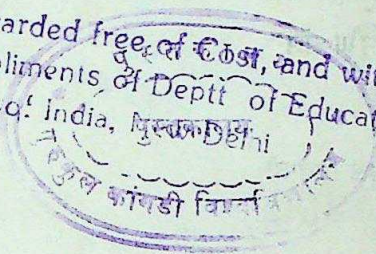 arded free of Cost, and wi
liments of Deptt of Educat
of India, New Delhi
पुस्तकालय
गुरुकुल कांगडी विश्वविद्यालय